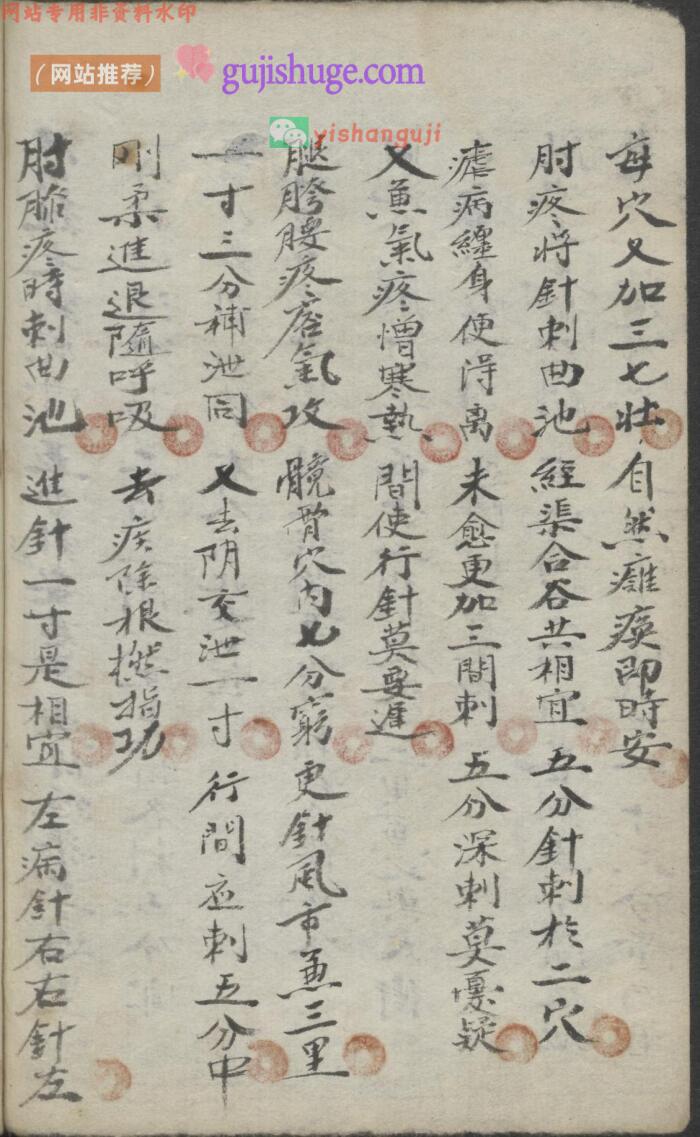 网站专用非资料水印
（网站推荐）
gujishuge.com
yishanguji
每穴又加三七壮自然癱瘓即時安
肘疼将針刺曲池經渠合谷共相宜五分針刺於二穴
瘧病纏身使得离未愈更加三間刺五分深刺莫憂疑
又兼氣疼憎寒熱間使行針莫要遲
腿胯腰疼痞氣攻髋骨穴内七分窮更針風市兼三里
一寸三分補泄同又去阴交泄一寸行間应刺五分中
刚柔進退隨呼吸去疾除根撚指功
肘膝疼時刺曲池進針一寸是相宜左病針右右針左